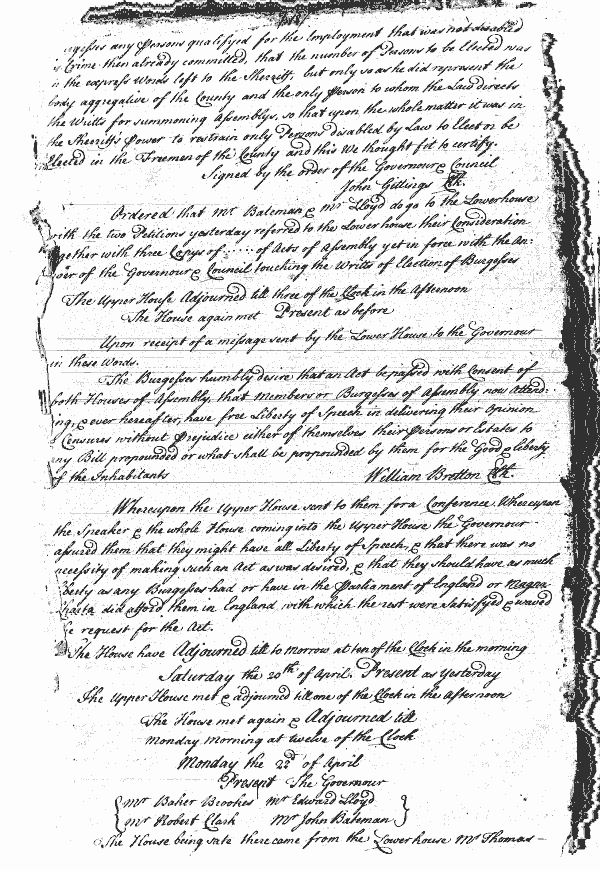 Burgesses any Persons qualifyed for the Employment that was not disabled
by Crime then already committed, that the number of Persons to be Elected was
in the express Words left to the Sherriff, but only so as he did represent the
body aggregative of the County and the only Person to whom the Law directs
the Writts for summoning Assemblys, so that upon the whole matter it was in
the Sherriff's Power to restrain only Persons disabled by Law to Elect or be
Elected in the Freemen of the County and this We thought fit to certify.
Signed by the order of the Governour & Council
John Gittings Clk.
Ordered that Mr Bateman & Mr Lloyd do go to the Lower house
with the two Petitions yesterday referred to the Lower house their Consideration
together with three Copys of of Acts of Assembly yet in force with the An:
swer of the Governour & Council touching the Writts of Election of Burgesses
The Upper House Adjourned till three of the Clock in the Afternoon
The House again met Present as before
Upon receipt of a message sent by the Lower House to the Governour
in these Words.
The Burgesses humbly desire that an Act be passed with Consent of
both Houses of Assembly that Members or Burgesses of Assembly now Attend:
ing, & ever hereafter, have free Liberty of Speech in delivering their Opinion
& Censures without Prejudice either of themselves their Persons or Estates to
any Bill propounded or what shall be propounded by them for the Good & liberty
of the Inhabitants William Bretton Clk.
Whereupon the Upper House sent to them for a Conference Whereupon
the Speaker & the whole House coming into the Upper House the Governour
assured them that they might have all Liberty of Speech, & that there was no
necessity of making such an Act as was desired, & that they should have as much
liberty as any Burgesses had or have in the Parliament of England or Magna
Charta did afford them in England with which the rest were satisfyed & waved
the request for the Act.
The House have Adjourned till to morrow at ten of the Clock in the morning
Saturday the 20th of April. Present as Yesterday
The Upper House met & adjourned till one of the Clock in the Afternoon
The House met again & Adjourned till
Monday morning at twelve of the Clock
Monday the 22d of April
Present The Governour
Mr Baker Brookes Mr Edward Lloyd
Mr Robert Clark Mr John Bateman
The House being sate there came from the Lower house Mr Thomas